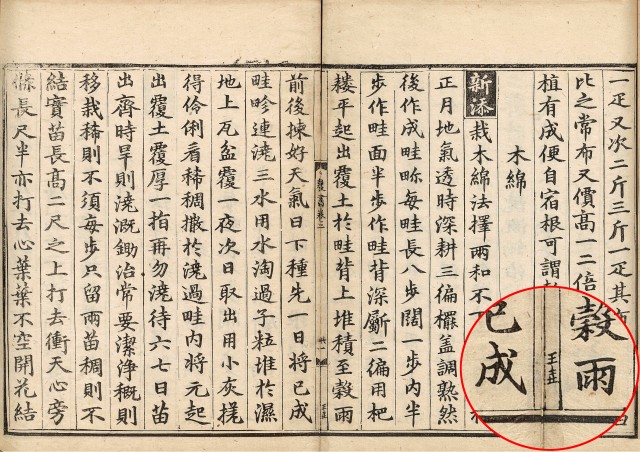 一疋又次二斤三斤一疋其布
比之常布又價高一二倍
植有成便自宿根可謂
木綿
新添栽木綿法擇兩和不下
正月地氣透時深耕三徧擺蓋調熟然
後作成畦畛每畦長八步闊一步內半
步作畦面半步作畦背深劚二徧用杷
耬平起出覆土於畦背上堆積至穀雨
書卷二
前後揀好天氣日下種先一日將已成
畦畛連澆三水用水淘過子粒堆於濕
地上瓦盆覆一夜次日取出用小灰搓
得伶俐看稀稠撒於澆過畦內將元起
出覆土覆厚一指再勿澆待六七日苗
出齊時旱則澆溉鋤治常要潔淨穊則
移栽稀則不須每步只留兩苗稠則不
結實苗長高二尺之上打去衝天心旁
條長尺半亦打去心葉葉不空開花結
穀雨
王正
已成